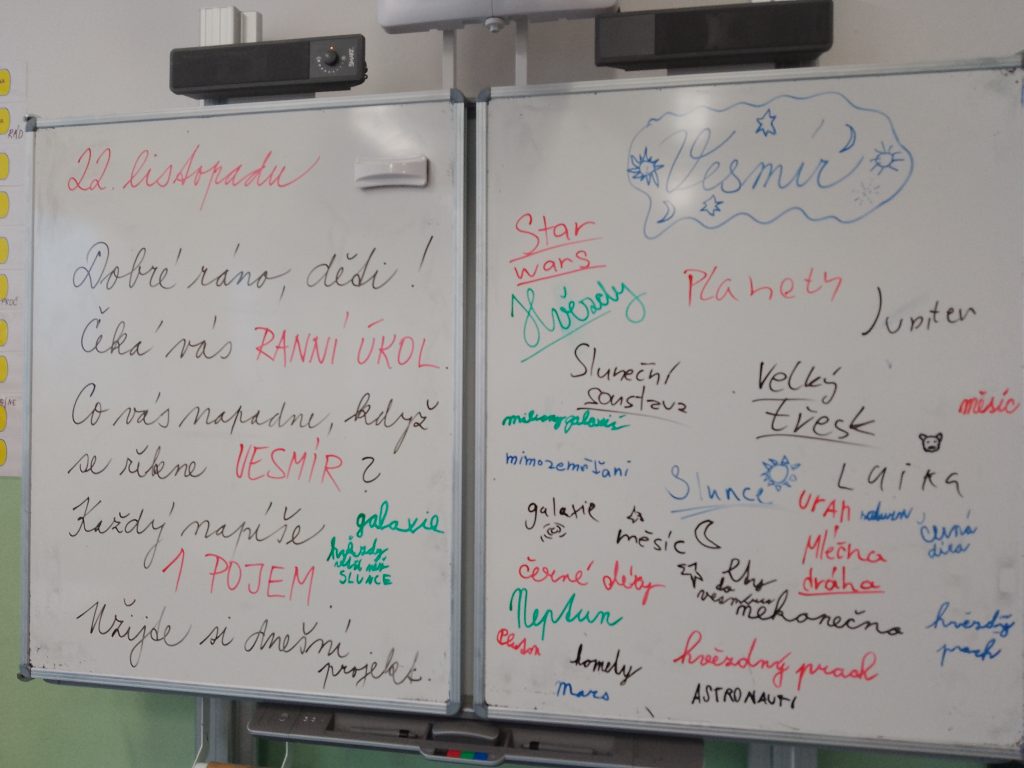 22. listopadu
Dobré ráno, děti!
Čeká vás RANNÍ ÚKOL.
Co vás napadne, když
se řekne VESMÍR?
Každý napíše
1 POJEM
galaxie
hvězdy
větší než
SLUNCE
Užijte si dnešní
projekt.
Vesmír
Star
wars
Planety
Hvězdy
Jupiter
Sluneční
soustava
Velký
třesk
měsíc
miliony galaxií
mimozemšťani
Slunce
Laika
Uran
saturn
černá
díra
galaxie
měsíc
Mléčná
dráha
černé díry
lety
do
vesmíru
nekonečno
Neptun
hvězdný
prach
komety
hvězdný prach
Mars
ASTRONAUTI
RÁD